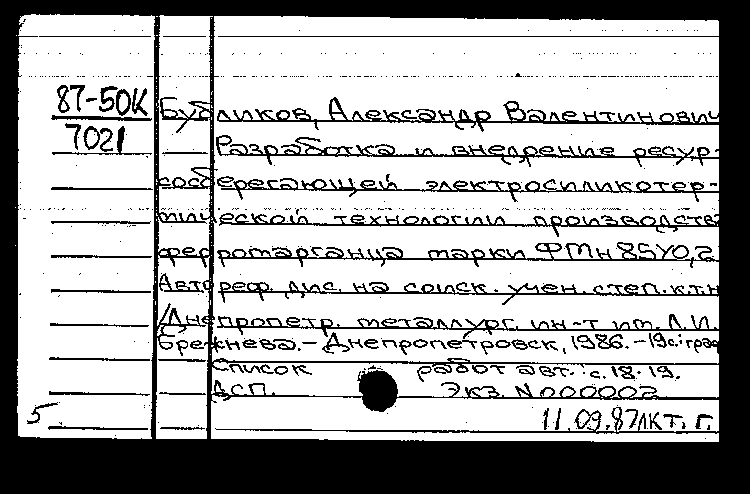 87-50К
7021
Бубликов, Александр Валентинович
Разработка и внедрение ресур-
сосберегающей электросиликотер-
мической технологии производства
ферромарганца марки ФМн85У0,2
Автореф. дис. на соиск. учен. степ. к.т.н
/Днепропетр. металлург. ин-т им. Л.И.
Брежнева.-Днепропетровск, 1986.-19с.: граф
Список работ авт.: с.18-19.
ДСП. Экз. N000002
5 11.09.87 т. г.